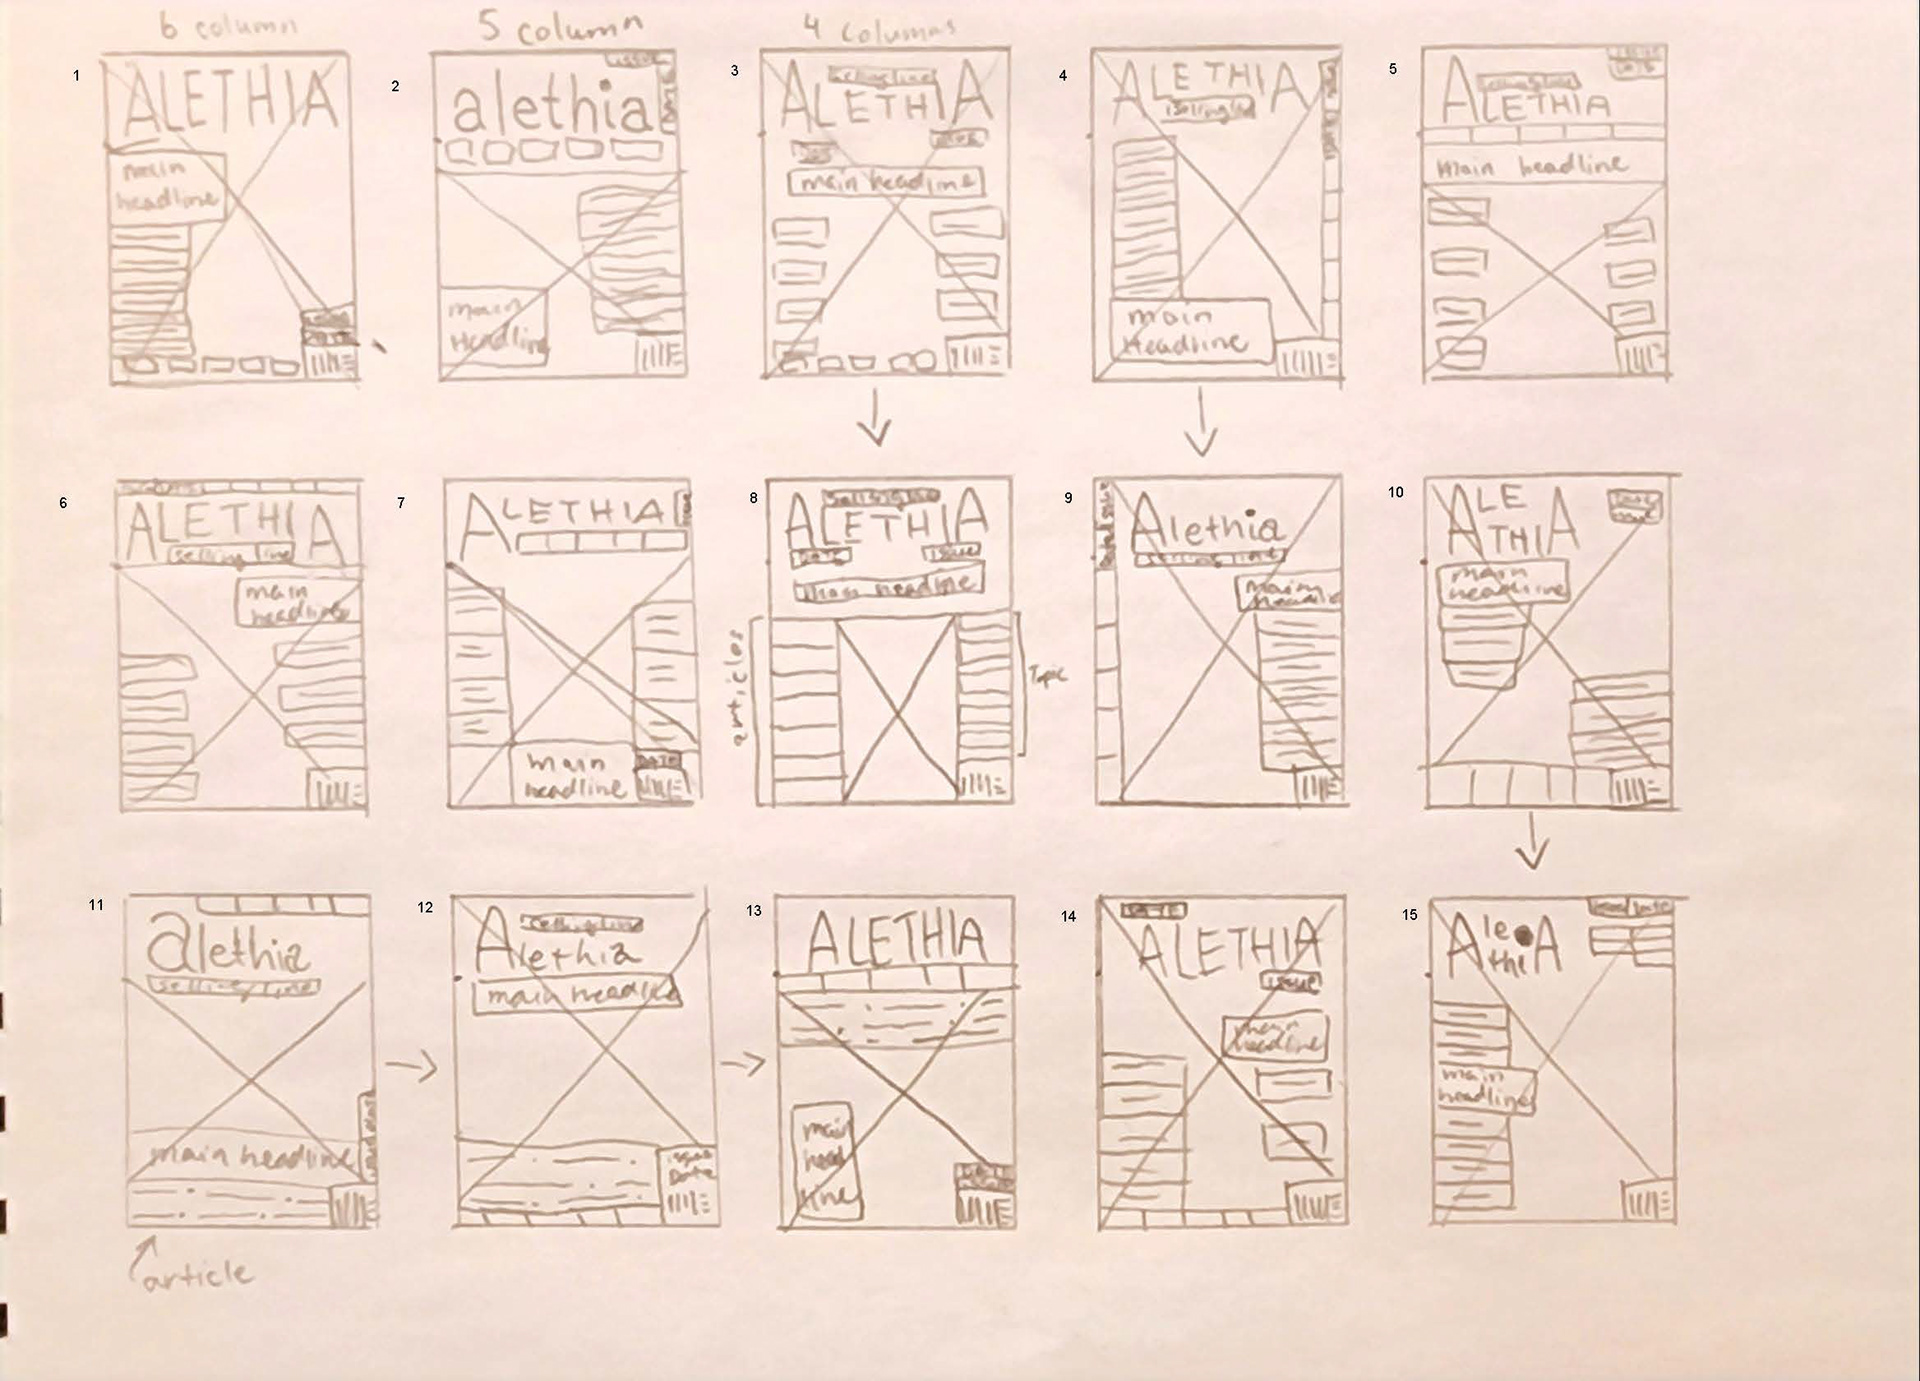 6 column
5 column
4 columns
1
ALETHIA
main
headline
2
issue
alethia
main
Headline
3
selling line
ALETHIA
issue
main headline
4
ALETHIA
selling line
main
Headline
5
issue
date
selling line
ALETHIA
main headline
6
ALETHIA
selling line
main
headline
7
ALETHIA
main
headline
DATE
8
selling line
ALETHIA
DATE
issue
main headline
articles
Topic
9
Alethia
selling line
main
10
ALE
THIA
main
headline
11
alethia
selling line
main headline
article
12
selling line
Alethia
main headline
issue
Date
13
ALETHIA
main
head
line
DATE
14
DATE
ALETHIA
issue
main
headline
15
Ale
thiA
main
headline